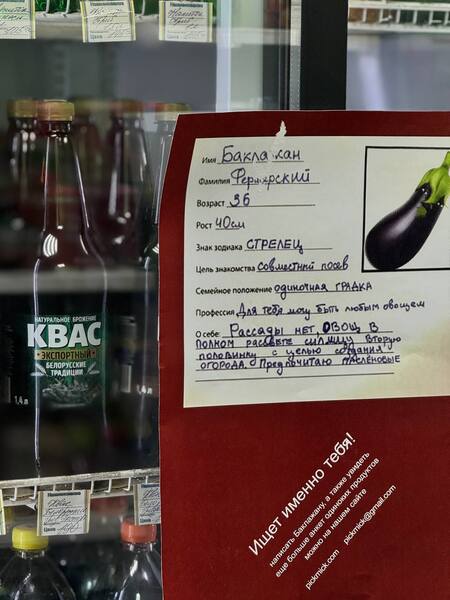 Имя Баклажан
Фамилия Фермерский
Возраст 36
Рост 40см
Знак зодиака СТРЕЛЕЦ
Цель знакомства совместный посев
Семейное положение одинотная ГРАДКА
Профессия Для тебя могу быть любым овощем
О себе: Рассады нет, ОВОЩ В
ПОЛНОМ расцвете сил, ищу вторую
половинку с целью создания
ОГОРОДА. Предпочитаю ПАСЛЁНОВЫЕ
Ищет именно тебя!
написать Баклажану, а также увидеть
еще больше анкет одиноких продуктов
можно на нашем сайте
pickmick.com pickmick@gmail.com
НАТУРАЛЬНОЕ БРОЖЕНИЕ
КВАС
ЭКСПОРТНЫЙ
БЕЛОРУССКИЕ
ТРАДИЦИИ
1,4 л